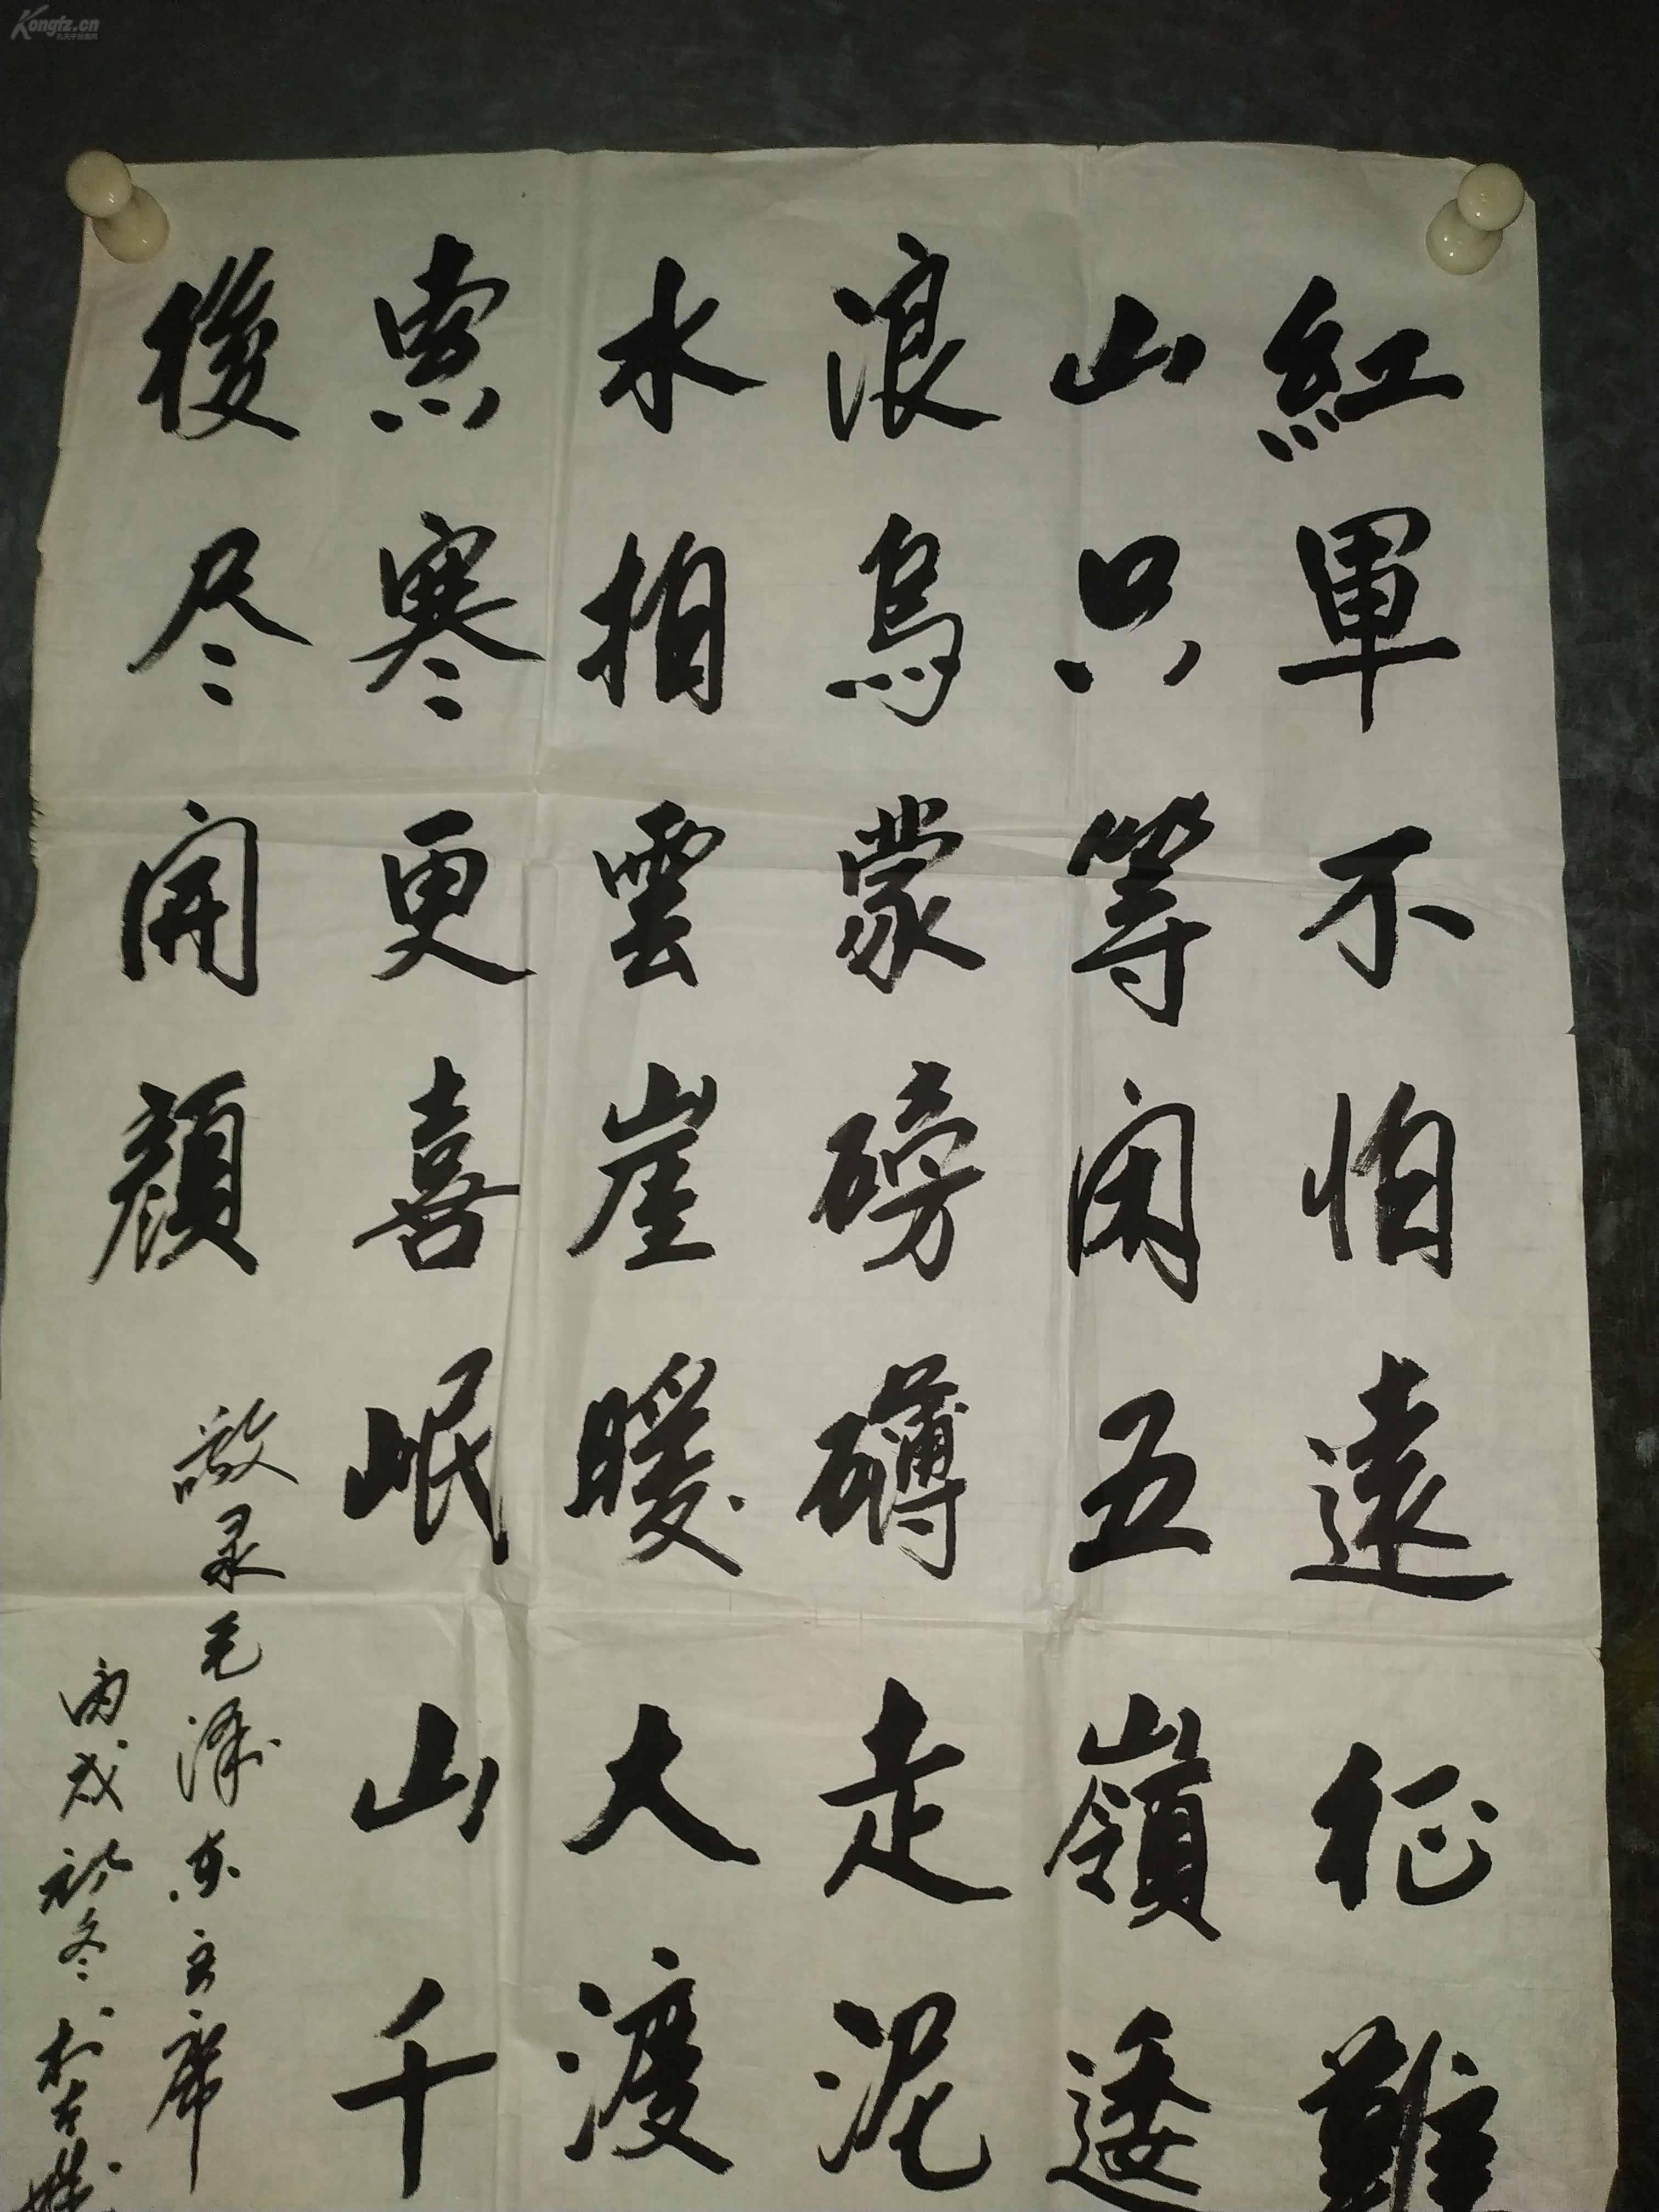 紅軍不怕遠征難
山只等闲五嶺逶
浪烏蒙磅礴走泥
水拍雲崖暖大渡
索寒更喜岷山千
後尽开顔
敬录毛泽东主席
丙戌初冬
Kongfz.cn